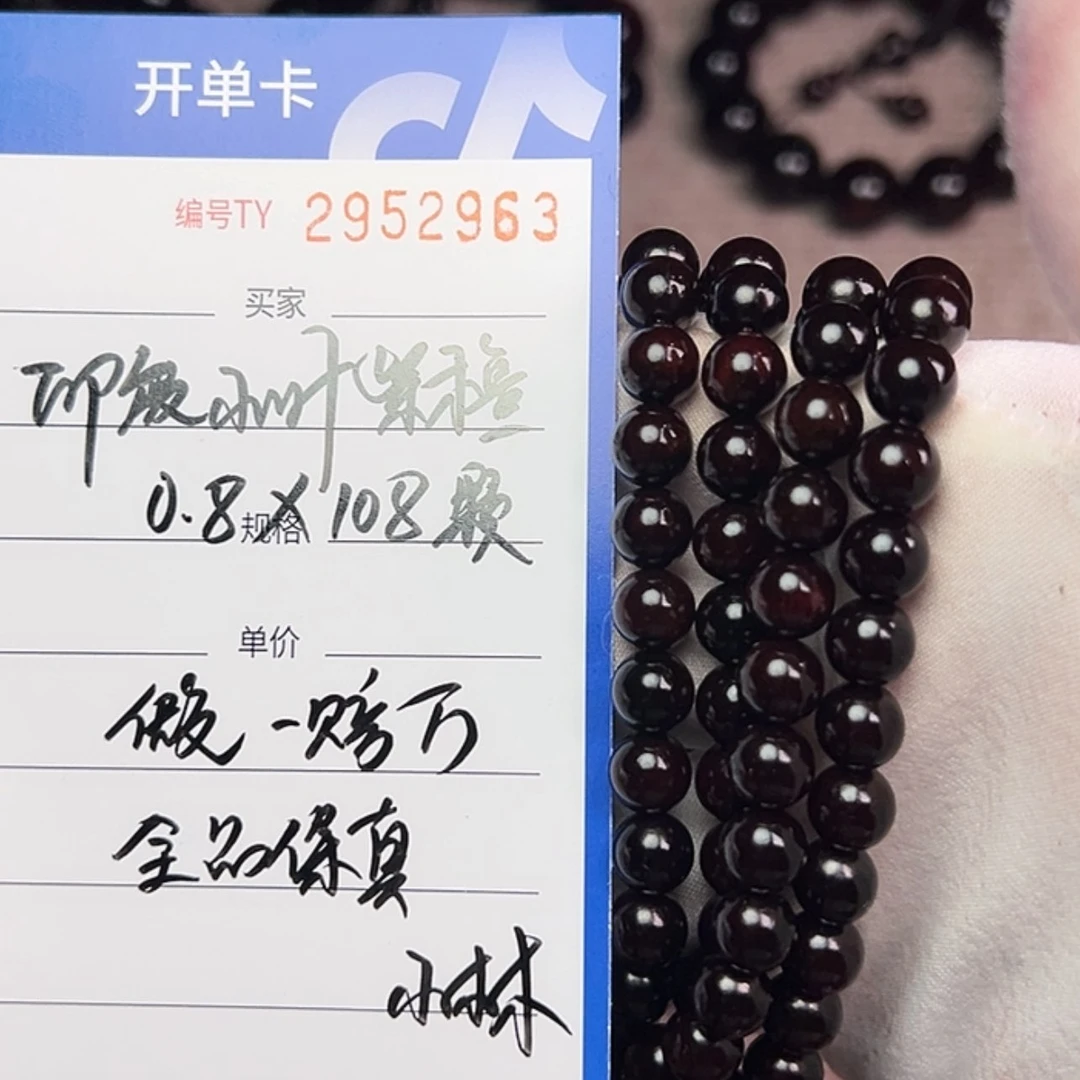 开单卡
编号TY 2952963
买家
印度小叶紫檀
0.8X108颗
规格
单价
假一赔万
全品保真
小林